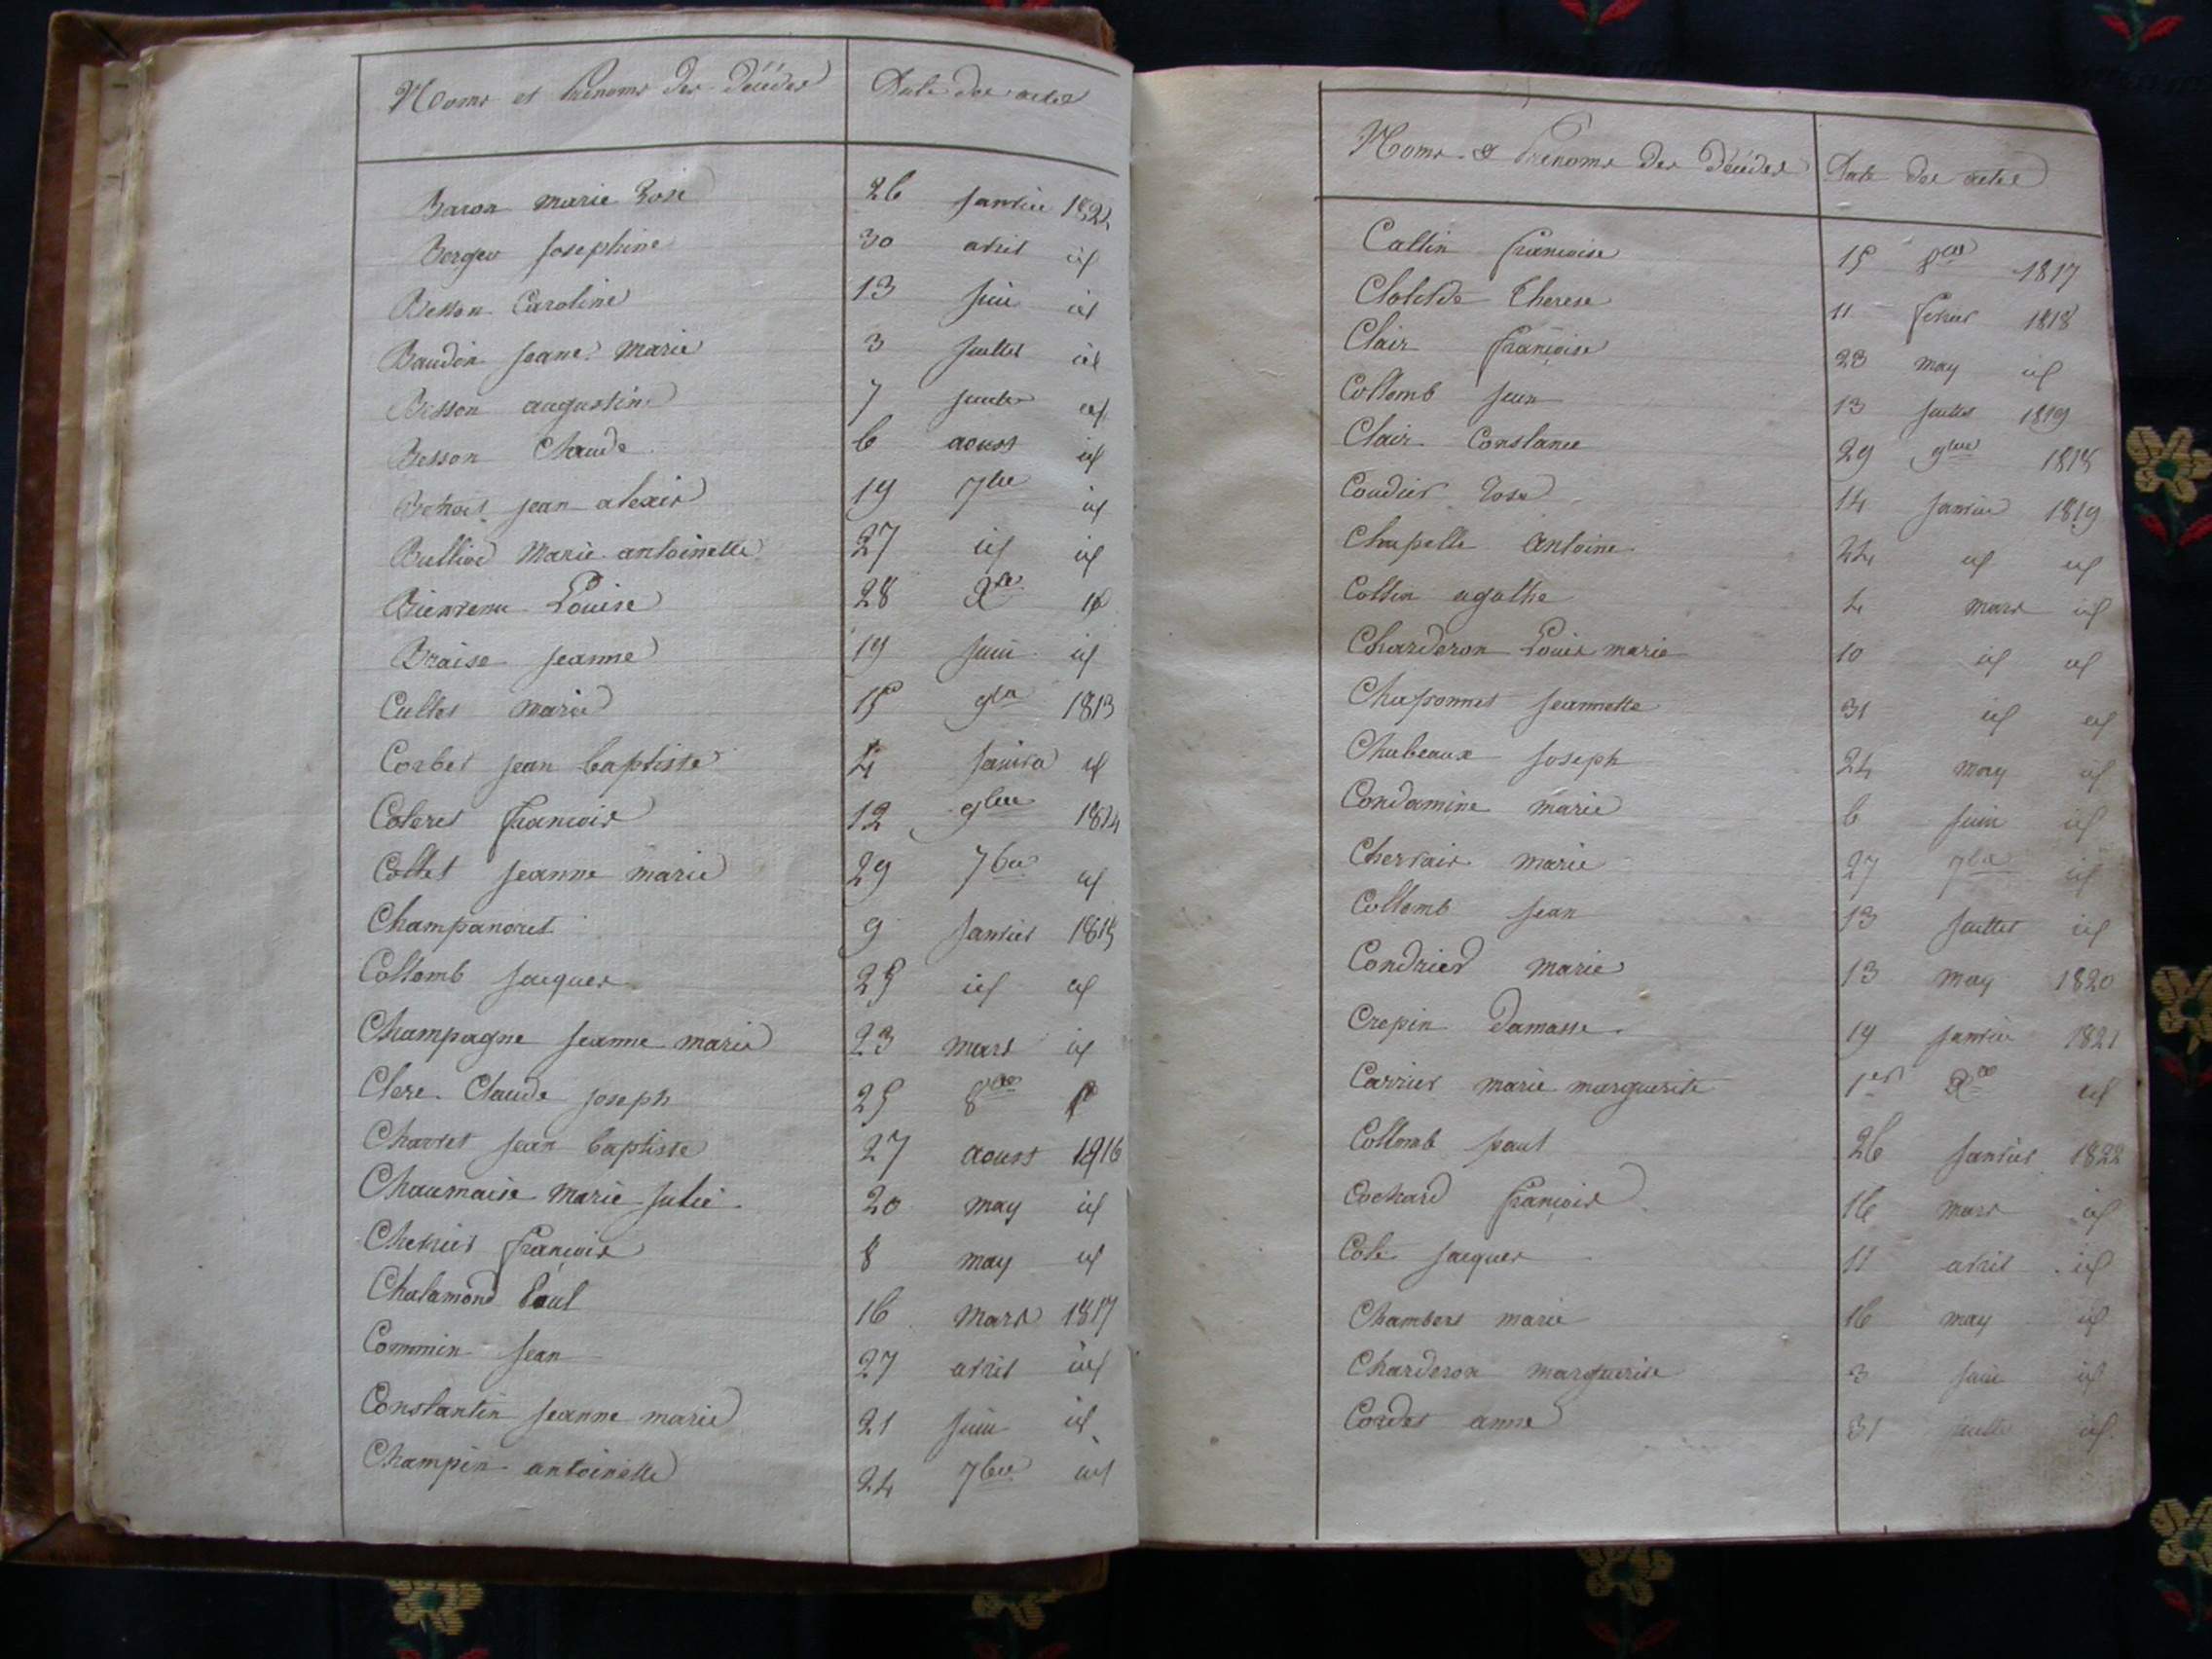 Noms et Prénoms des décédés Date des actes
Baron marie Rose 26 janvier 1822
Berger josephine 30 avril id
Besson Caroline 13 juin id
Baudin jeane marie 3 juillet id
Bisson augustine 7 juillet id
Besson Claude 6 aoust id
jean alexis 19 7bre id
Bullion Marie antoinette 27 id id
Bienvenu Louise 28 Xbre id
Braise jeanne 19 juin id
Cullet marie 15 9bre 1813
Corbet jean baptiste 4 janvier id
Coteret françois 12 9bre 1814
Collet jeanne marie 29 7bre id
Champanoret 9 janvier 1815
Collomb jacques 25 id id
Champagne jeanne marie 23 mars id
Clere Claude joseph 25 8bre
Charret jean baptiste 27 aoust 1816
Chaumaise marie julie 20 may id
Chevrier françois 8 may id
Chalamond Paul 16 mars 1817
Commin jean 27 avril id
Constantin jeanne marie 21 juin id
Champin antoinette 24 7bre id
Noms & Prénoms des décédés Date des actes
Cattin françoise 15 8bre 1817
Clotilde Therese 11 fevrier 1818
Clair françoise 23 may id
Collomb jean 13 juillet 1819
Clair Constance 29 9bre 1818
Coudier Rose 14 janvier 1819
Chapelle Antoine 24 id id
Collin agathe 4 mars id
Charderon Louis marie 10 id id
Chaponnet jeannette 31 id id
Chabeaux joseph 24 may id
Condamine marie 6 juin id
Chervais marie 27 7bre id
Collomb jean 13 juillet id
Condrier marie 13 may 1820
Crepin Damasse 19 janvier 1821
Carrier marie marguerite 1er Xbre id
Collomb paul 26 janvier 1822
Cochard françois 16 mars id
Cote jacques 11 avril id
Chambert marie 16 may id
Charderon marguerite 3 juin id
Cordet anne 31 juillet id